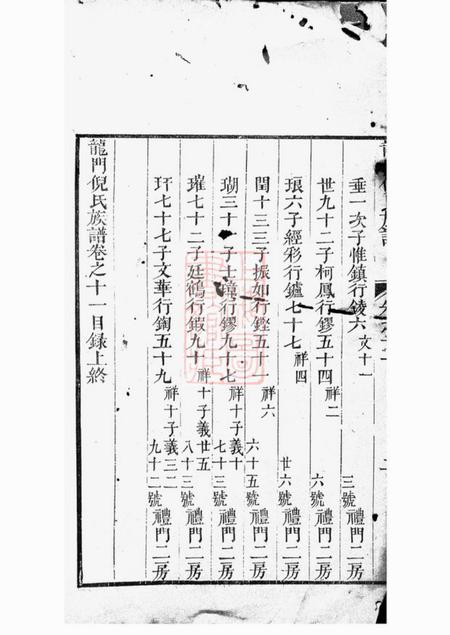 垂一次子惟鎮行錂六 文十一 三號禮門二房
世九十二子柯鳳行鏐五十四 祥二 六號禮門二房
琅六子經彩行鑪七十七 祥四 廿六號禮門二房
閏十三三子振如行鏗五十一 祥六 六十五號禮門二房
瑚三十一子士鏡行鏐九十七 祥十子義十 七十三號禮門二房
璀七十二子廷鶴行鍜九十 祥十子義廿五 八十三號禮門二房
玕七十七子文華行鋾五十九 祥十子義三二 九十二號禮門二房
龍門倪氏族譜卷之十一目錄上終